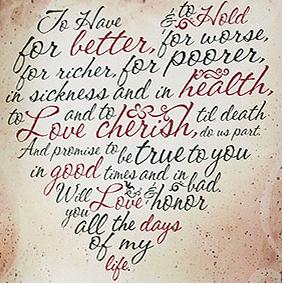 To Have & to Hold
for better, for worse,
for richer, for poorer,
in sickness and in health,
to Love and to cherish, til death do us part.
And promise to be true to you
in good times and in bad.
Will Love & honor
you
all the days
of my
life.